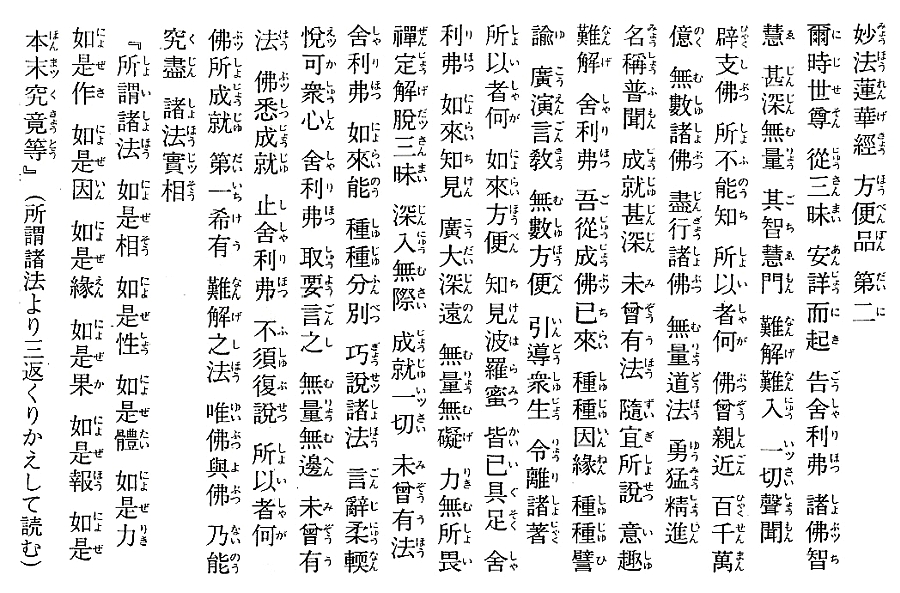 妙法蓮華經 方便品 第二
爾時世尊 從三昧 安詳而起 告舍利弗 諸佛智
慧 甚深無量 其智慧門 難解難入 一切聲聞
辟支佛 所不能知 所以者何 佛曾親近 百千萬
億 無數諸佛 盡行諸佛 無量道法 勇猛精進
名稱普聞 成就甚深 未曾有法 隨宜所說 意趣
難解 舍利弗 吾從成佛已來 種種因緣 種種譬
諭 廣演言敎 無數方便 引導衆生 令離諸著
所以者何 如來方便 知見波羅蜜 皆已具足 舍
利弗 如來知見 廣大深遠 無量無礙 力無所畏
禪定解脫三昧 深入無際 成就一切 未曾有法
舍利弗 如來能 種種分別 巧說諸法 言辭柔輭
悅可衆心 舍利弗 取要言之 無量無邊 未曾有
法 佛悉成就 止舍利弗 不須復說 所以者何
佛所成就 第一希有 難解之法 唯佛與佛 乃能
究盡 諸法實相
『所謂諸法 如是相 如是性 如是體 如是力
如是作 如是因 如是緣 如是果 如是報 如是
本末究竟等』（所謂諸法より三返くりかえして読む）